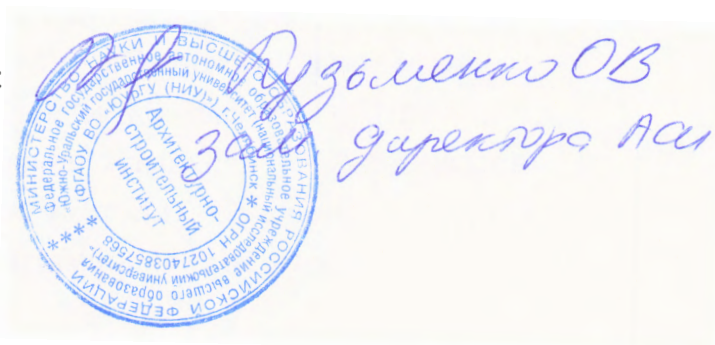 Кузьменко ОВ
зам директора АСИ
МИНИСТЕРСТВО НАУКИ И ВЫСШЕГО ОБРАЗОВАНИЯ РОССИЙСКОЙ ФЕДЕРАЦИИ
Федеральное государственное автономное образовательное учреждение высшего образования
«Южно-Уральский государственный университет (национальный исследовательский университет)»
(ФГАОУ ВО «ЮУрГУ (НИУ)») г.Челябинск * ОГРН 1027403857568
Архитектурно-
строительный
институт